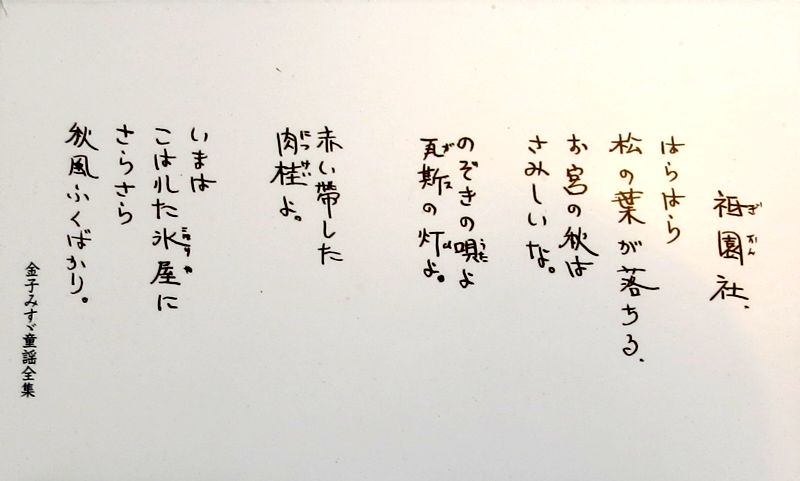 祇園社、
はらはら
松の葉が落ちる、
お宮の秋は
さみしいな。
のぞきの唄よ
瓦斯の灯よ。
赤い帶した
肉桂よ。
いまは
こはれた氷屋に
さらさら
秋風ふくばかり。
金子みすゞ童謡全集